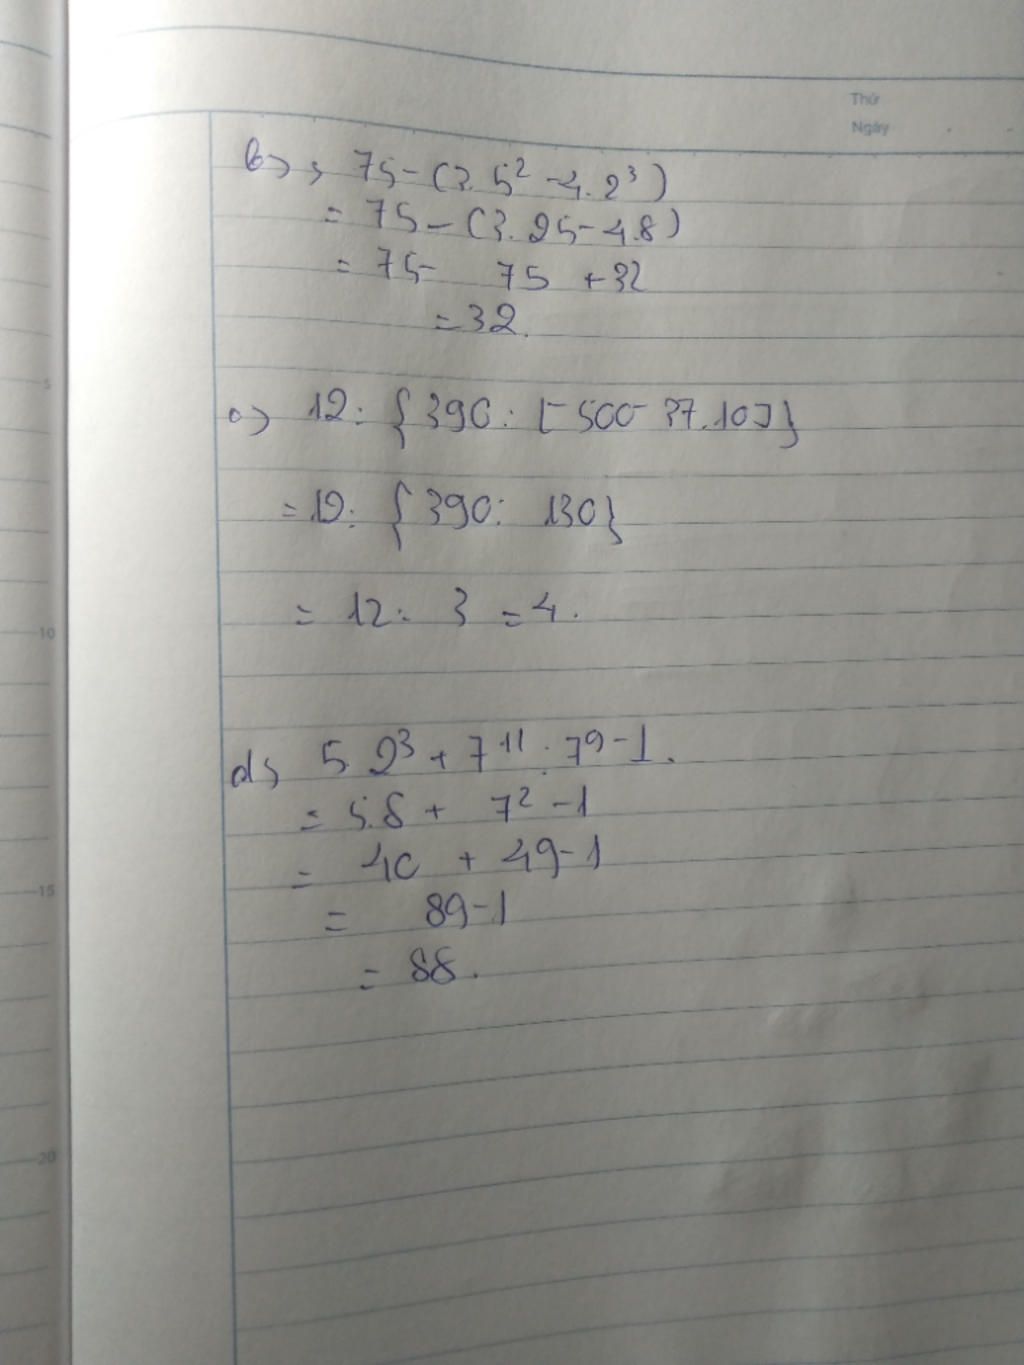 Thứ
Ngày
b) 75-(3.5² -4.2³)
= 75-(3.25-4.8)
= 75- 75 +32
= 32.
c) 12: {390: [500-37.10]}
= 12: {390: 130}
= 12: 3 = 4.
d) 5.2³ + 7¹¹ : 7⁹-1.
= 5.8 + 7² -1
= 40 + 49-1
= 89-1
= 88.
5
10
15
20